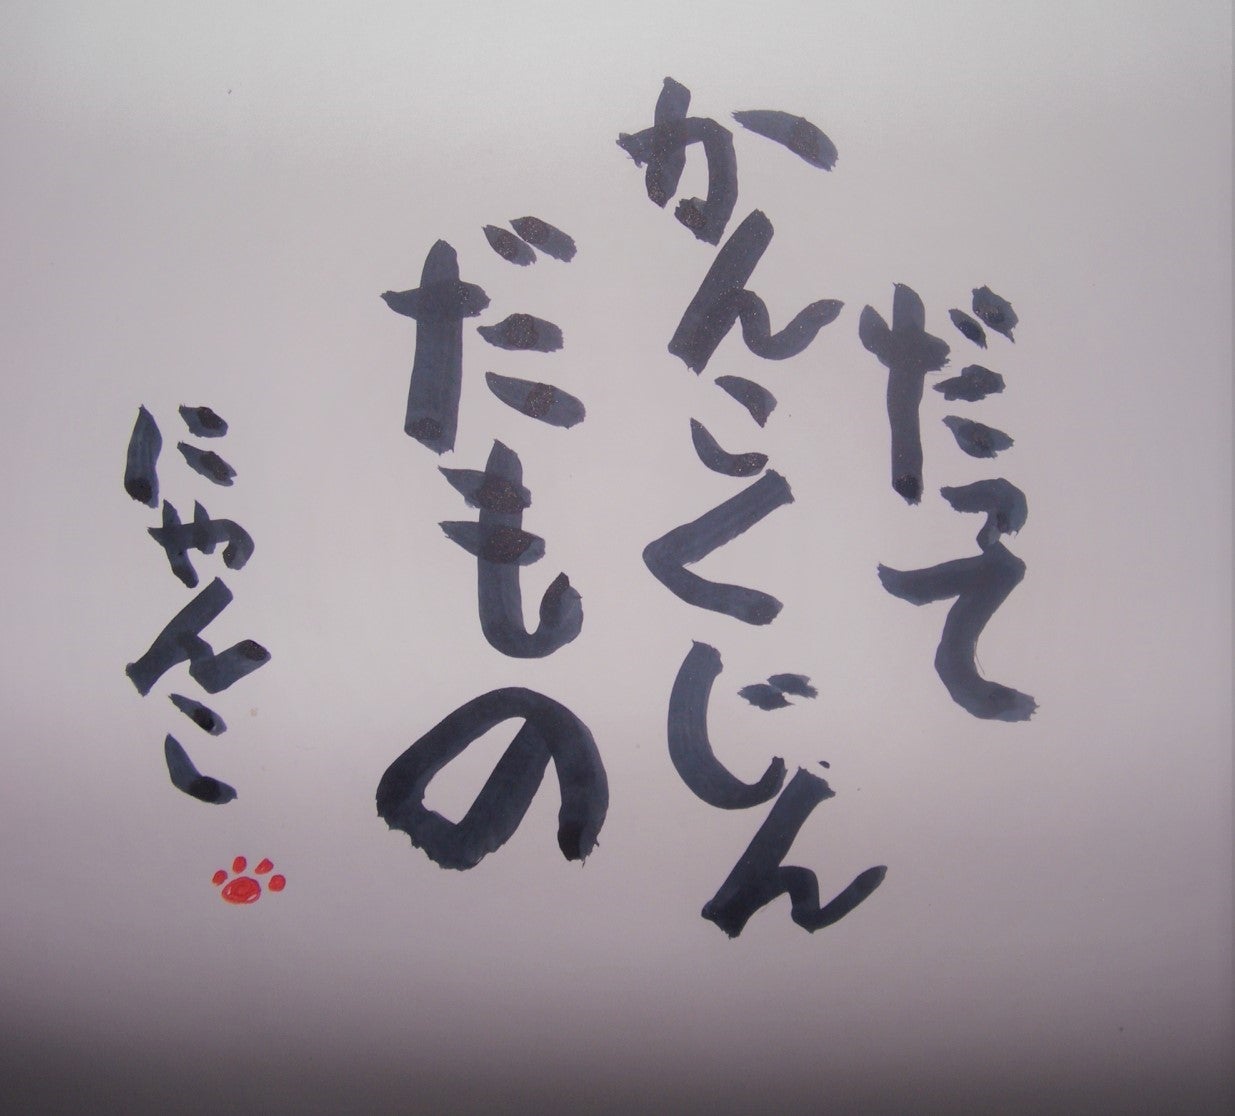 だって
かんこくじん
だもの
にゃんこ